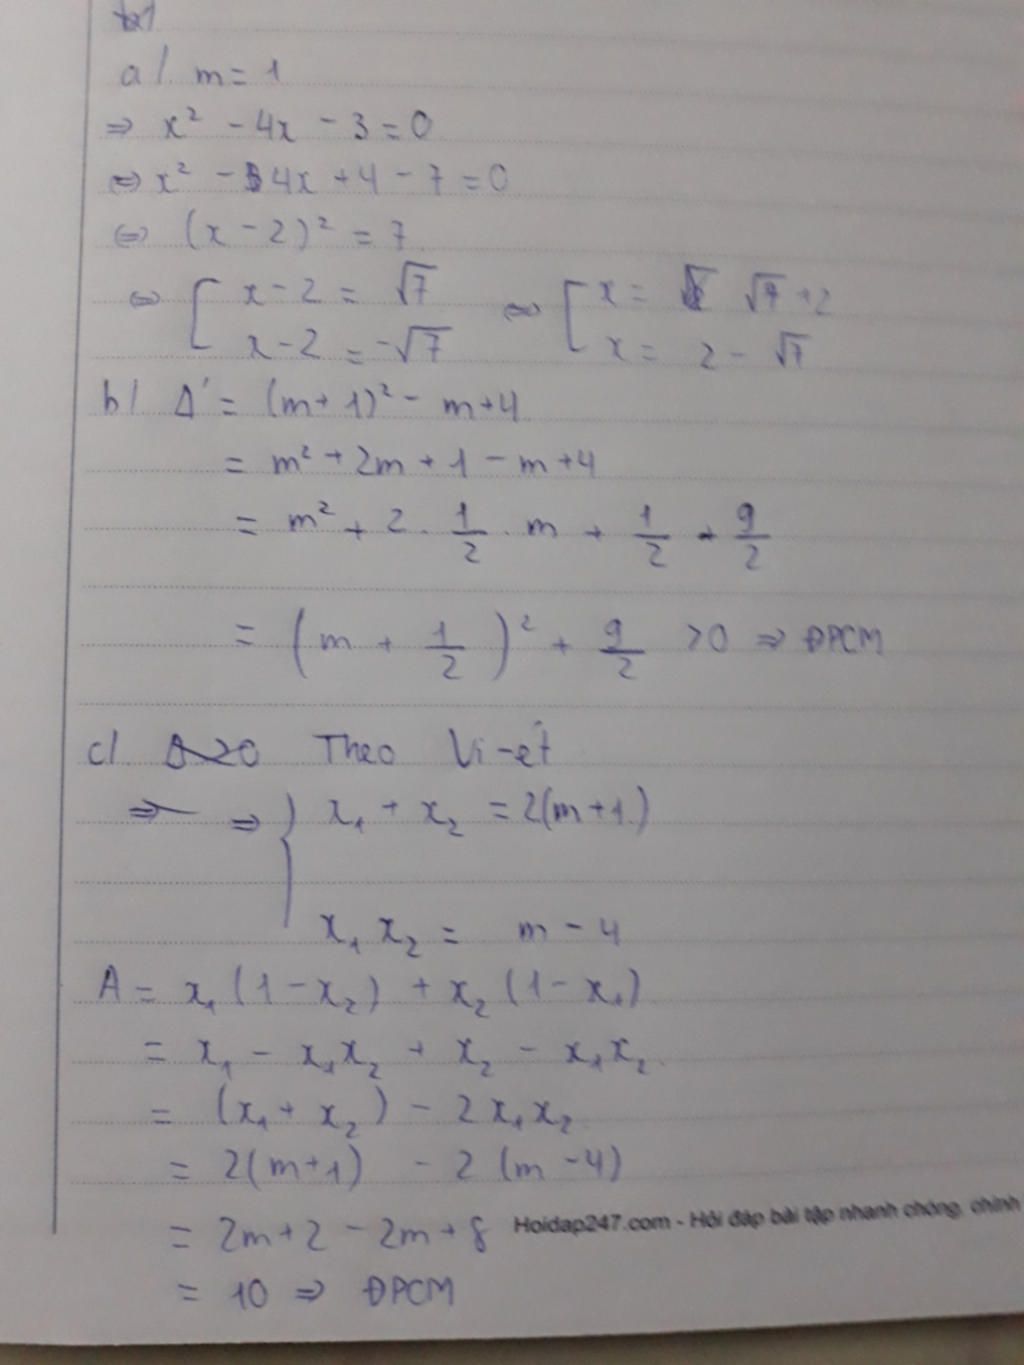 a/ m = 1
⇒ x² - 4x - 3 = 0
⇔ x² - 4x + 4 - 7 = 0
⇔ (x - 2)² = 7
⇔ [ x - 2 = √7 ⇔ [ x = √7 + 2
x - 2 = -√7 x = 2 - √7
b/ Δ' = (m + 1)² - m + 4
= m² + 2m + 1 - m + 4
= m² + 2 . 1/2 . m + 1/2 + 9/2
= (m + 1/2)² + 9/2 > 0 ⇒ ĐPCM
c/. Theo Vi-ét
⇒ { x₁ + x₂ = 2(m + 1)
x₁ x₂ = m - 4
A = x₁ (1 - x₂) + x₂ (1 - x₁)
= x₁ - x₁x₂ + x₂ - x₁x₂
= (x₁ + x₂) - 2x₁x₂
= 2(m+1) - 2 (m - 4)
= 2m + 2 - 2m + 8
Hoidap247.com - Hỏi đáp bài tập nhanh chóng, chính
= 10 ⇒ ĐPCM